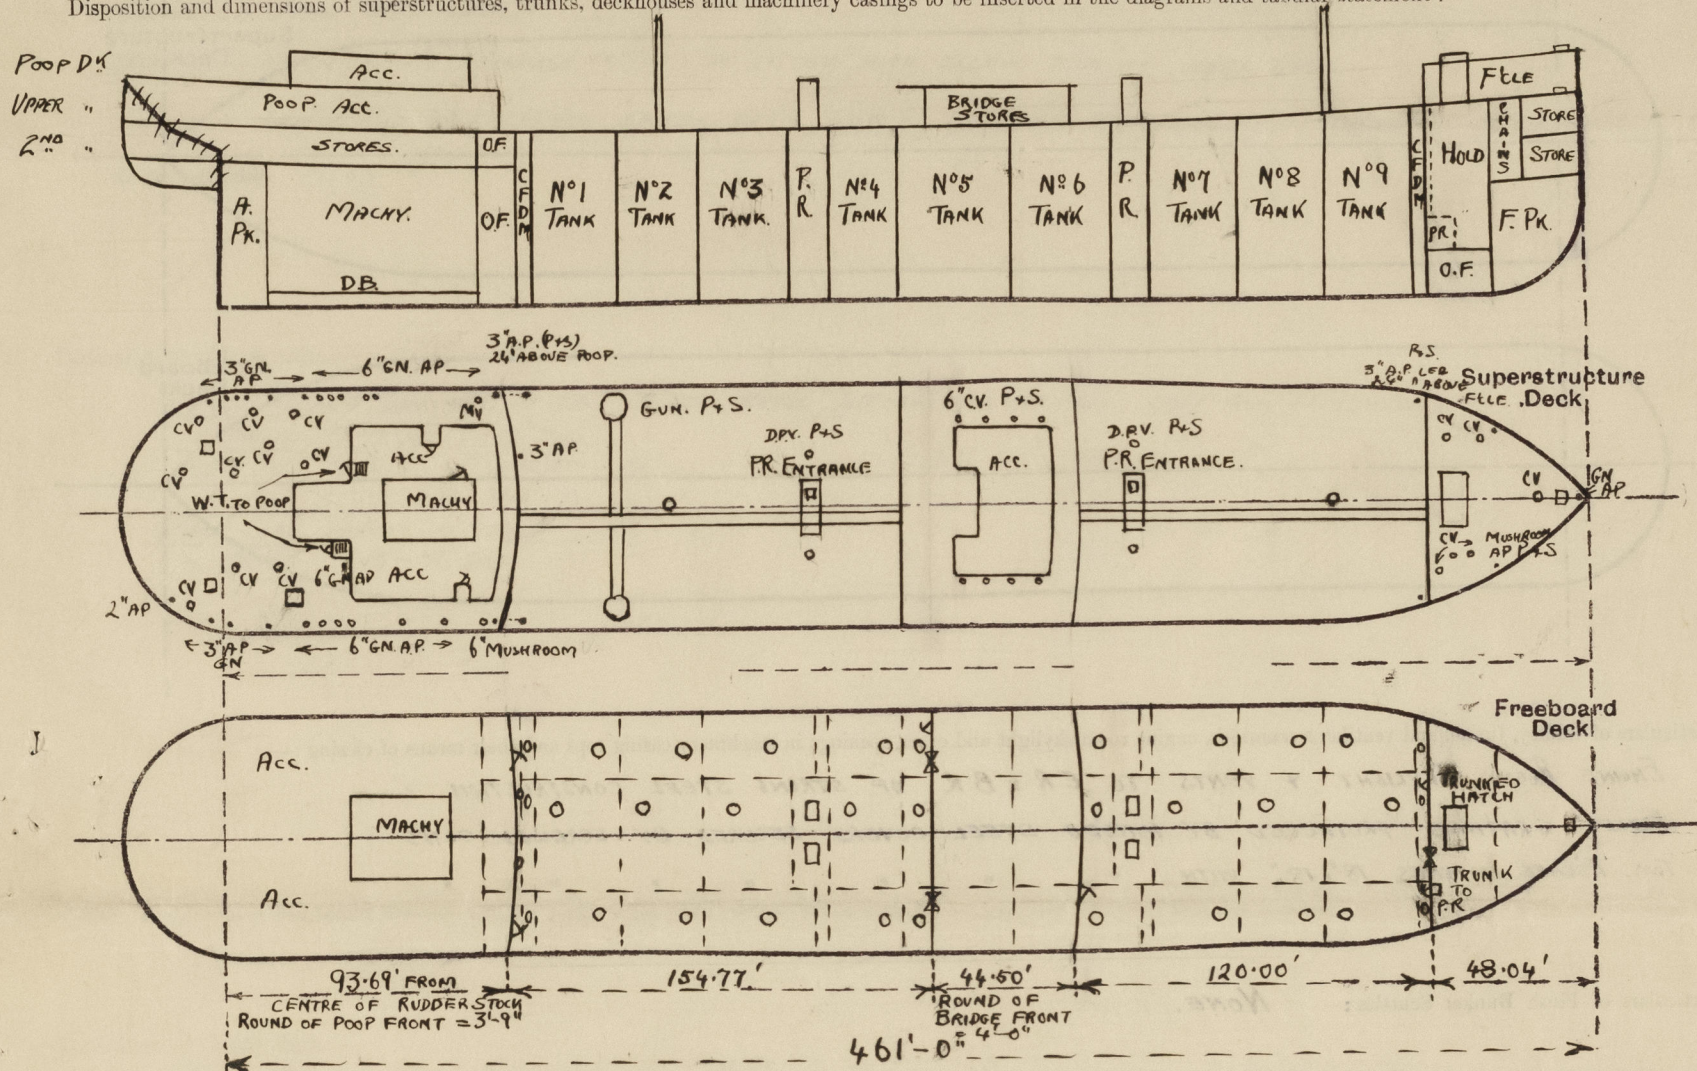 Disposition and dimensions of superstructures, trunks, deckhouses and machinery casings to be inserted in the diagrams and tabular statement:
POOP DK
UPPER "
2ND "
ACC.
POOP. ACC.
STORES.
O.F.
A. PK.
MACHY.
D.B.
O.F.
CFDM
No1 TANK
No2 TANK
No3 TANK.
P.R.
No4 TANK
BRIDGE STORES
No5 TANK
No6 TANK
P.R.
No7 TANK
No8 TANK
No9 TANK
CFDM
HOLD
PR
O.F.
FCLE
CHAINS
STORE
STORE
F. PK.
3"GN. AP
6"GN. AP
3"A.P. (P+S)
24" ABOVE POOP.
Superstructure
Deck
FCLE
CV
CV
CV
CV
CV
CV
CV
MV
W.T. TO POOP
ACC
MACHY
ACC
3"AP.
GUN. P+S.
D.P.V. P+S
P.R. ENTRANCE
6"CV. P+S.
ACC.
D.P.V. P+S
P.R. ENTRANCE.
CV
CV
CV
GN AP
CV
MUSHROOM
AP P+S
CV
CV
CV
2"AP
3"AP GN
6"GN. A.P.
6"MUSHROOM
Freeboard
Deck
ACC.
MACHY
ACC.
TRUNKED HATCH
TRUNK TO P.R
93.69' FROM
CENTRE OF RUDDERSTOCK
ROUND OF POOP FRONT = 3'-9"
154.77'
44.50'
ROUND OF
BRIDGE FRONT
= 4'-0"
120.00'
48.04'
461'-0"